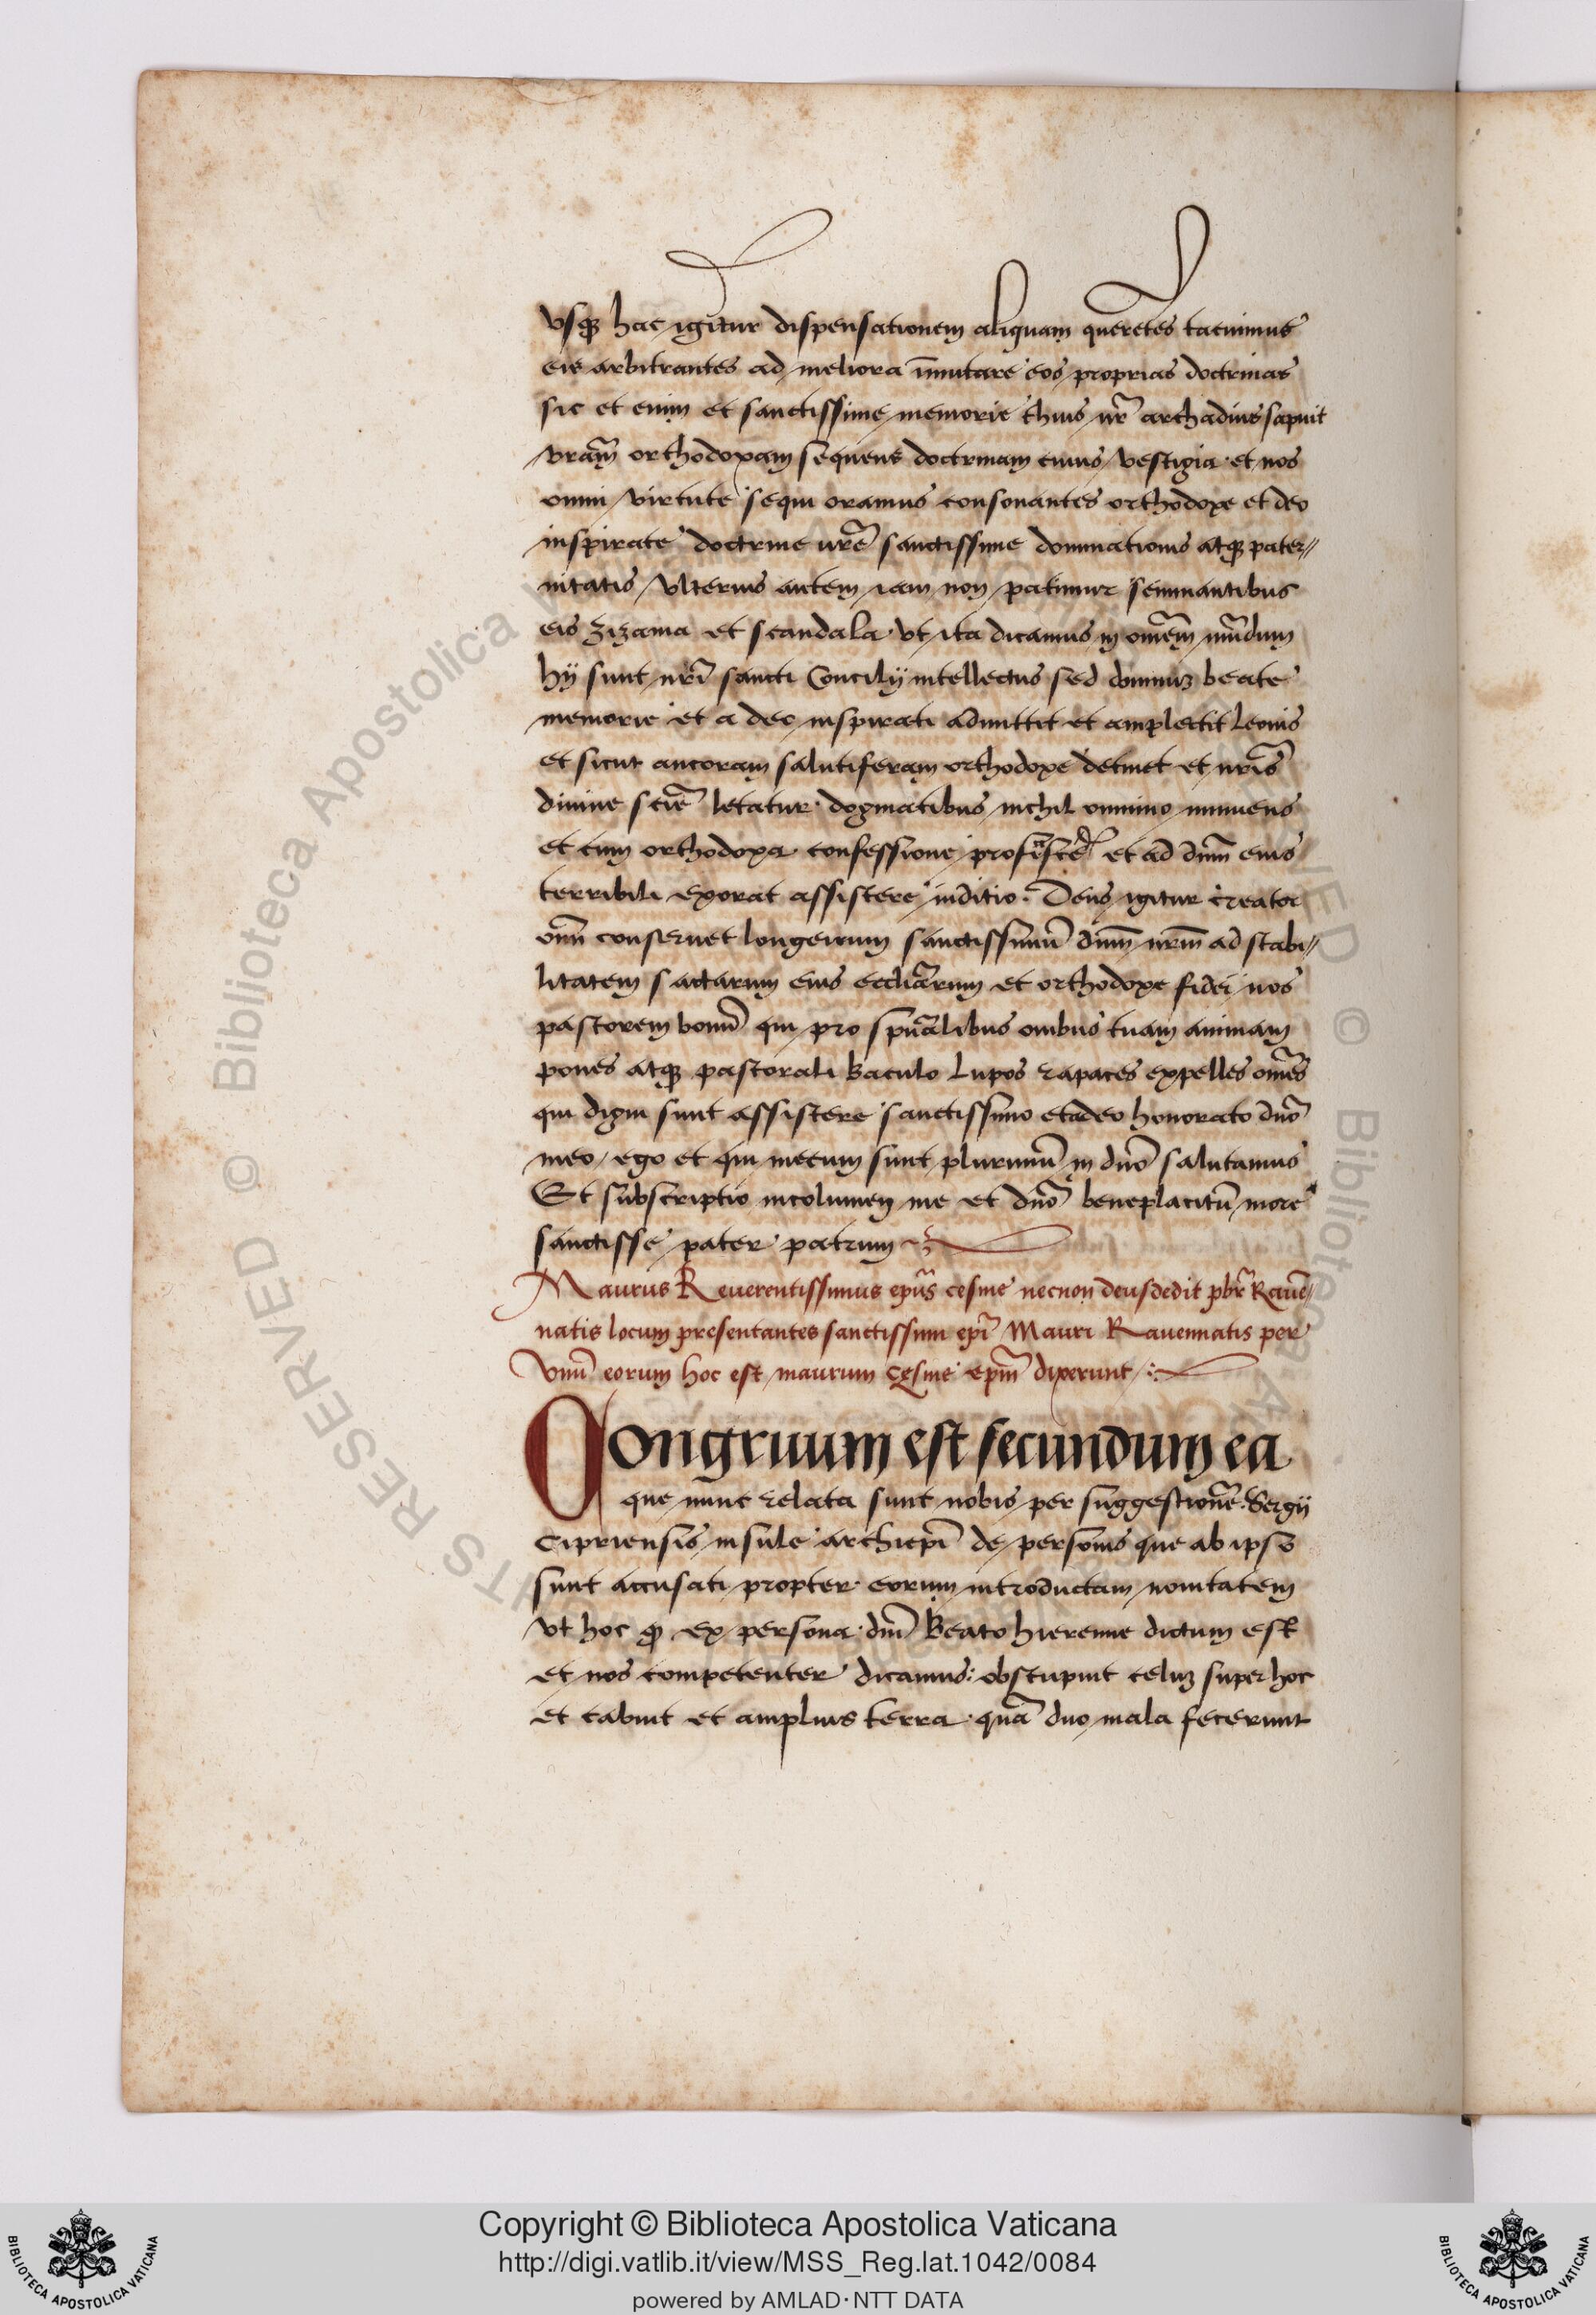 vsqꝫ hac igitur dispensationem aliquam querẽtes tacuimus
eis arbitrantes ad meliora ĩmutare eos proprias doctrinas
sic et enim et sanctissime memorie thius nr̃ archadius sapuit
vram̃ orthodoxam sequens doctrinam cuius vestigia et nos
omni virtute sequi oramus consonantes orthodoxe et deo
inspirate doctrine urẽ sanctissime dominationis atqꝫ pater〃
nitatis Vlterius autem iam non patimur seminantibus
eis zizania et scandala vt ita dicamus in omẽm mũdum
hij sunt nrĩ sancti Concilij intellectus sed dominuꝫ beate
memorie et a deo inspirati admittit et amplectit Leonis
et sicut ancoram salutiferam orthodoxe detinet et nrĩs
diuine letatur dogmatibus nichil omnino minuens
et cum orthodoxa confessione et ad dnm̃ eius
terribili exorat assistere iuditio. Deus igitur creator
om̃ conseruet longeuum sanctissimũ dnm̃ nrm̃ ad stabi〃
litatem sactarum eius eccliãrum et orthodoxe fidei nos
pastorem bonũ qui pro spũalibus ouibus tuam animam
pones atqꝫ pastorali baculo Lupos rapaces expelles om̃es
qui digni sunt assistere sanctissimo et a deo honorato dnõ
meo ego et qui mecum sunt plurimũ in dnõ salutamus
Et subscriptio incolumen me et dnõ beneplacitũ more
sanctisse pater patrum
Maurus Reuerentissimus epũs cesine necnon deusdedit pbr̃ Rauẽ〃
natis locum presentantes sanctissimi epĩ Mauri Rauennatis per
Vnũ eorum hoc est maurum Cesine epm̃ dixerunt
Congruum est secundum ea
que nunc relata sunt nobis per suggestionẽ Sergij
Cipriensis insule archiepĩ de personis que ab ipso
sunt accusati propter eorum introductam nouitatem
vt hoc ꝙ ex persona dnĩ beato hieremie dictum est
et nos competenter dicamus: obstupuit celuꝫ super hoc
et tabuit et amplius terra quã duo mala fecerunt
Copyright © Biblioteca Apostolica Vaticana
http://digi.vatlib.it/view/MSS_Reg.lat.1042/0084
powered by AMLAD·NTT DATA
BIBLIOTECA APOSTOLICA VATICANA
BIBLIOTECA APOSTOLICA VATICANA